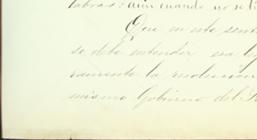 labras: aún cuando no se ti
Que en este sent
se debe entender esa ley
ramente la resolucion
mismo Gobierno del